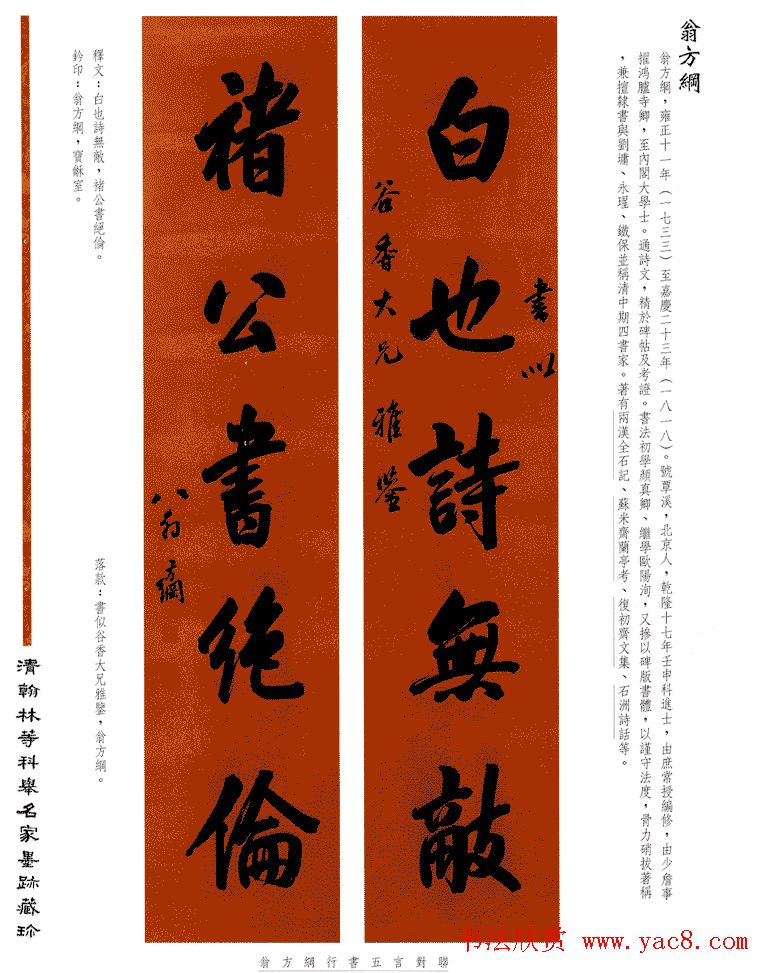 翁方綱
翁方綱，雍正十一年（一七三三）至嘉慶二十三年（一八一八）。號覃溪，北京人，乾隆十七年壬申科進士，由庶常授編修，由少詹事
擢鴻臚寺卿，至內閣大學士。通詩文，精於碑帖及考證。書法初學顏真卿、繼學歐陽洵，又摻以碑版書體，以謹守法度，骨力硝拔著稱
，兼擅隸書與劉墉、永瑆、鐵保並稱清中期四書家。著有兩漢全石記、蘇米齋蘭亭考、復初齋文集、石洲詩話等。
書似
白也詩無敵
谷香大兄雅鑒
褚公書絕倫
翁方綱
釋文：白也詩無敵，褚公書絕倫。
鈐印：翁方綱，寶穌室。
落款：書似谷香大兄雅鑒，翁方綱。
清翰林等科舉名家墨跡藏珍
翁方綱行書五言對聯
书法欣赏 www.yac8.com